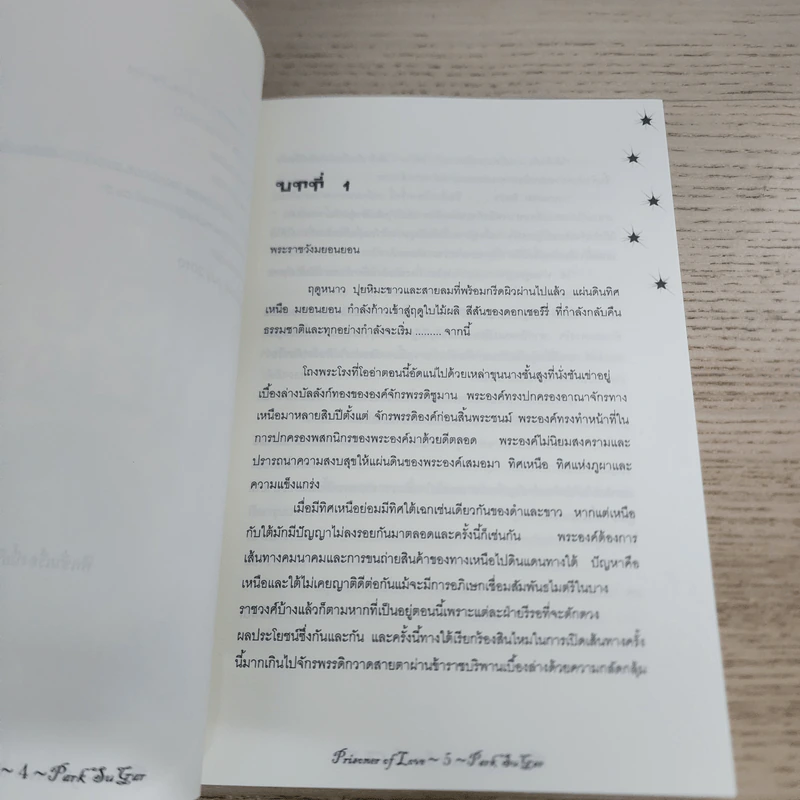 บทที่ 1
พระราชวังมยอนยอน
ฤดูหนาว ปุยหิมะขาวและสายลมที่พร้อมกรีดผิวผ่านไปแล้ว แผ่นดินทิศ
เหนือ มยอนยอน กำลังก้าวเข้าสู่ฤดูใบไม้ผลิ สีสันของดอกเชอร์รี่ ที่กำลังกลับคืน
ธรรมชาติและทุกอย่างกำลังจะเริ่ม ......... จากนี้
โถงพระโรงที่โออ่าตอนนี้อัดแน่นไปด้วยเหล่าขุนนางชั้นสูงที่นั่งชันเข่าอยู่
เบื้องล่างบัลลังก์ทองขององค์จักรพรรดิชูมาน พระองค์ทรงปกครองอาณาจักรทาง
เหนือมาหลายสิบปีตั้งแต่ จักรพรรดิองค์ก่อนสิ้นพระชนม์ พระองค์ทรงทำหน้าที่ใน
การปกครองพสกนิกรของพระองค์มาด้วยดีตลอด พระองค์ไม่นิยมสงครามและ
ปรารถนาความสงบสุขให้แผ่นดินของพระองค์เสมอมา ทิศเหนือ ทิศแห่งภูผาและ
ความแข็งแกร่ง
เมื่อมีทิศเหนือย่อมมีทิศใต้เฉกเช่นเดียวกันของดำและขาว หากแต่เหนือ
กับใต้มักมีปัญญาไม่ลงรอยกันมาตลอดและครั้งนี้ก็เช่นกัน พระองค์ต้องการ
เส้นทางคมนาคมและการขนถ่ายสินค้าของทางเหนือไปดินแดนทางใต้ ปัญหาคือ
เหนือและใต้ไม่เคยญาติดีต่อกันแม้จะมีการอภิเษกเชื่อมสัมพันธไมตรีในบาง
ราชวงศ์บ้างแล้วก็ตามหากที่เป็นอยู่ตอนนี้เพราะแต่ละฝ่ายรีรอที่จะตักตวง
ผลประโยชน์ซึ่งกันและกัน และครั้งนี้ทางใต้เรียกร้องสินไหมในการเปิดเส้นทางครั้ง
นี้มากเกินไปจักรพรรดิกวาดสายตาผ่านข้าราชบริพานเบื้องล่างด้วยความกลัดกลุ้ม
~ 4 ~ Park Su Gar
Prisoner of Love ~ 5 ~ Park Su Gar